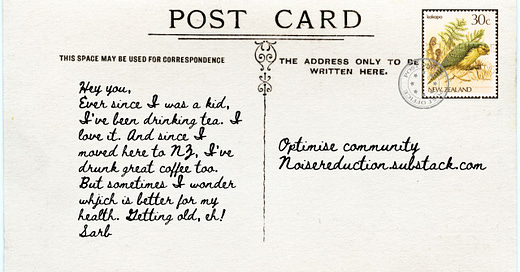 POST CARD
THIS SPACE MAY BE USED FOR CORRESPONDENCE
THE ADDRESS ONLY TO BE
WRITTEN HERE.
kakapo
30c
NEW ZEALAND
POST OFFICE
Hey you,
Ever since I was a kid,
I've been drinking tea. I
love it. And since I
moved here to NZ, I've
drunk great coffee too.
But sometimes I wonder
which is better for my
health. Getting old, eh!
Sarb
Optimise community
Noisereduction.substack.com